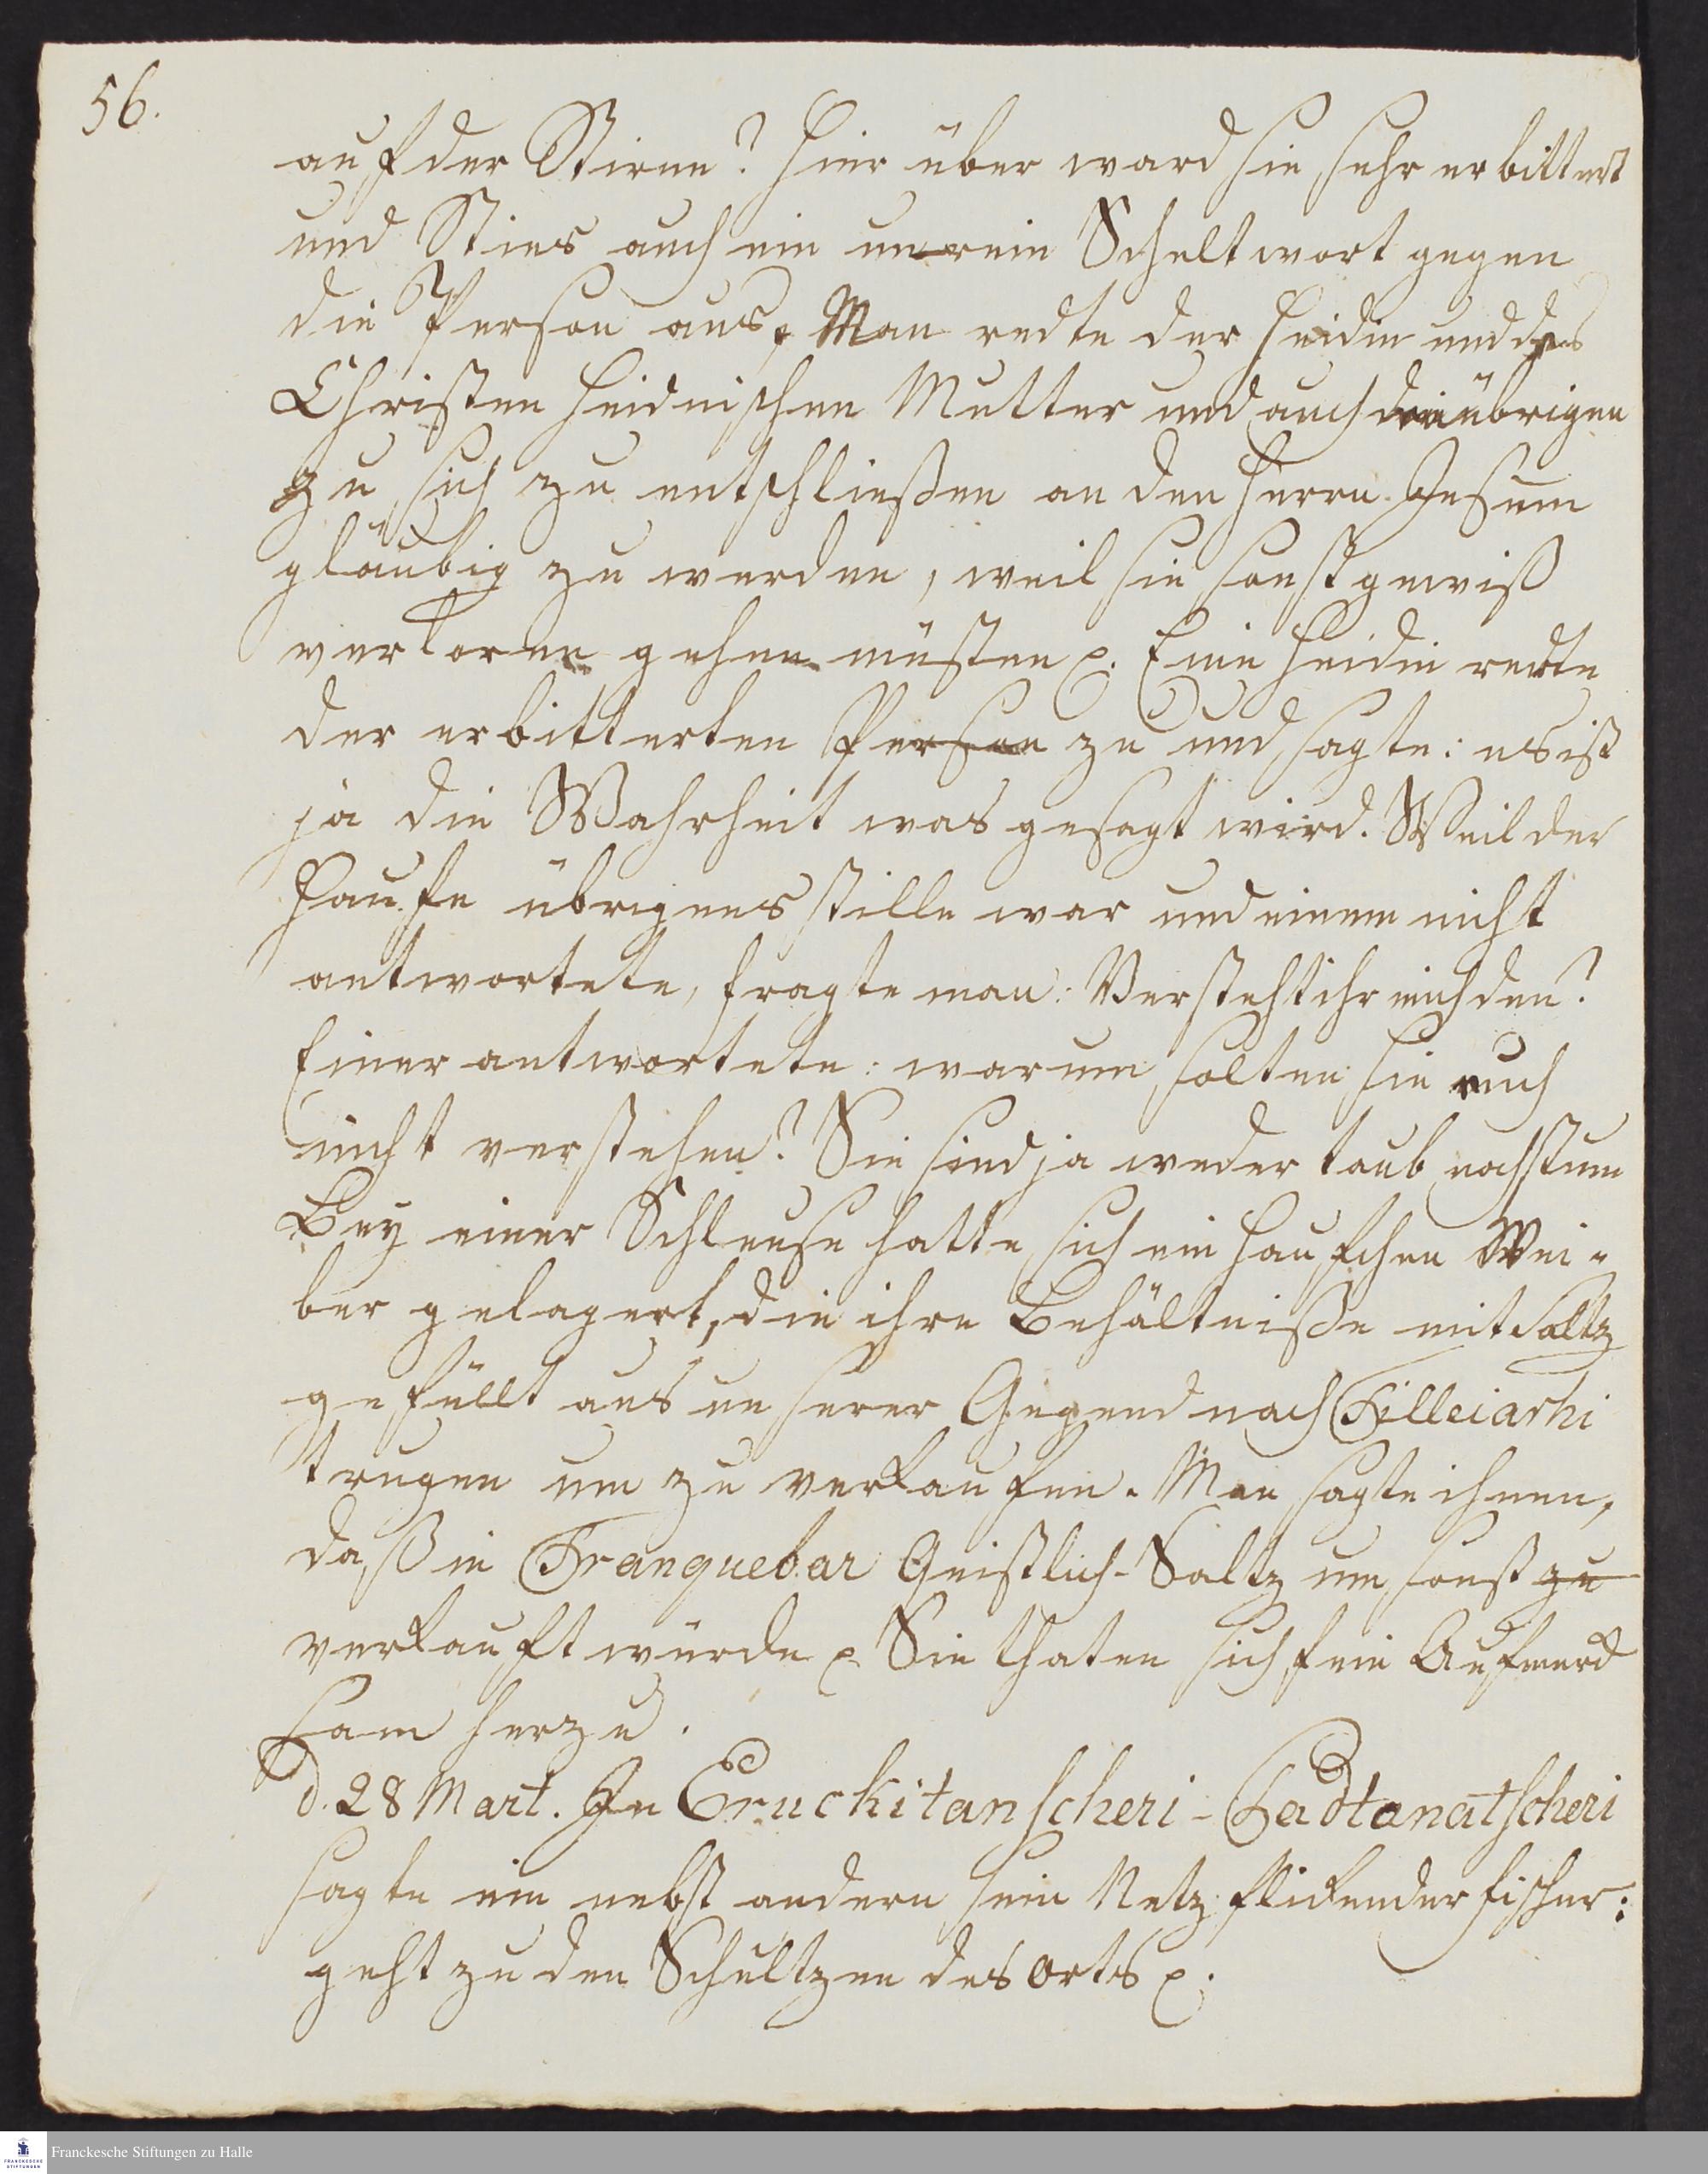 56.
auf der Stirne? Hier über ward sie sehr erbittert
und Sties auch ein unrein Scheltwort gegen
die Person aus. Man redte der Heidin und des
Christen Heidnischen Mutter und auch den übrigen
zu sich zu entschließen an den Herrn Jesum
gläubig zu werden, weil sie sonst gewiß
verloren gehen müsten p. Eine Heidin redte
der erbitterten Person zu und sagte: es ist
ja die Wahrheit was gesagt wird. Weil der
Haufe übrigens stille war und einem nicht
antwortete, fragte man: Versteht ihr mich den?
Einer antwortete: warum solten sie euch
nicht verstehen? Sie sind ja weder taub noch stum
Bey einer Schleuse hatte sich ein Haufchen Wei-
ber gelagert, die ihre Behältniße mit Saltz
gefüllt aus unserer Gegend nach Tilleiarhi
trugen um zu verkaufen. Man sagte ihnen,
daß in Tranquebar Geistlich-Saltz um sonst zu
verkauft würde p. Sie thaten sich fein Aufmerck
sam herzu.
d. 28 Mart. In Eruckitanscheri-Padtanatscheri
sagte ein nebst andern sein Netz flickender fischer:
geht zu den Schultzen des Orts p.
Franckesche Stiftungen zu Halle
FRANCKESCHE
STIFTUNGEN